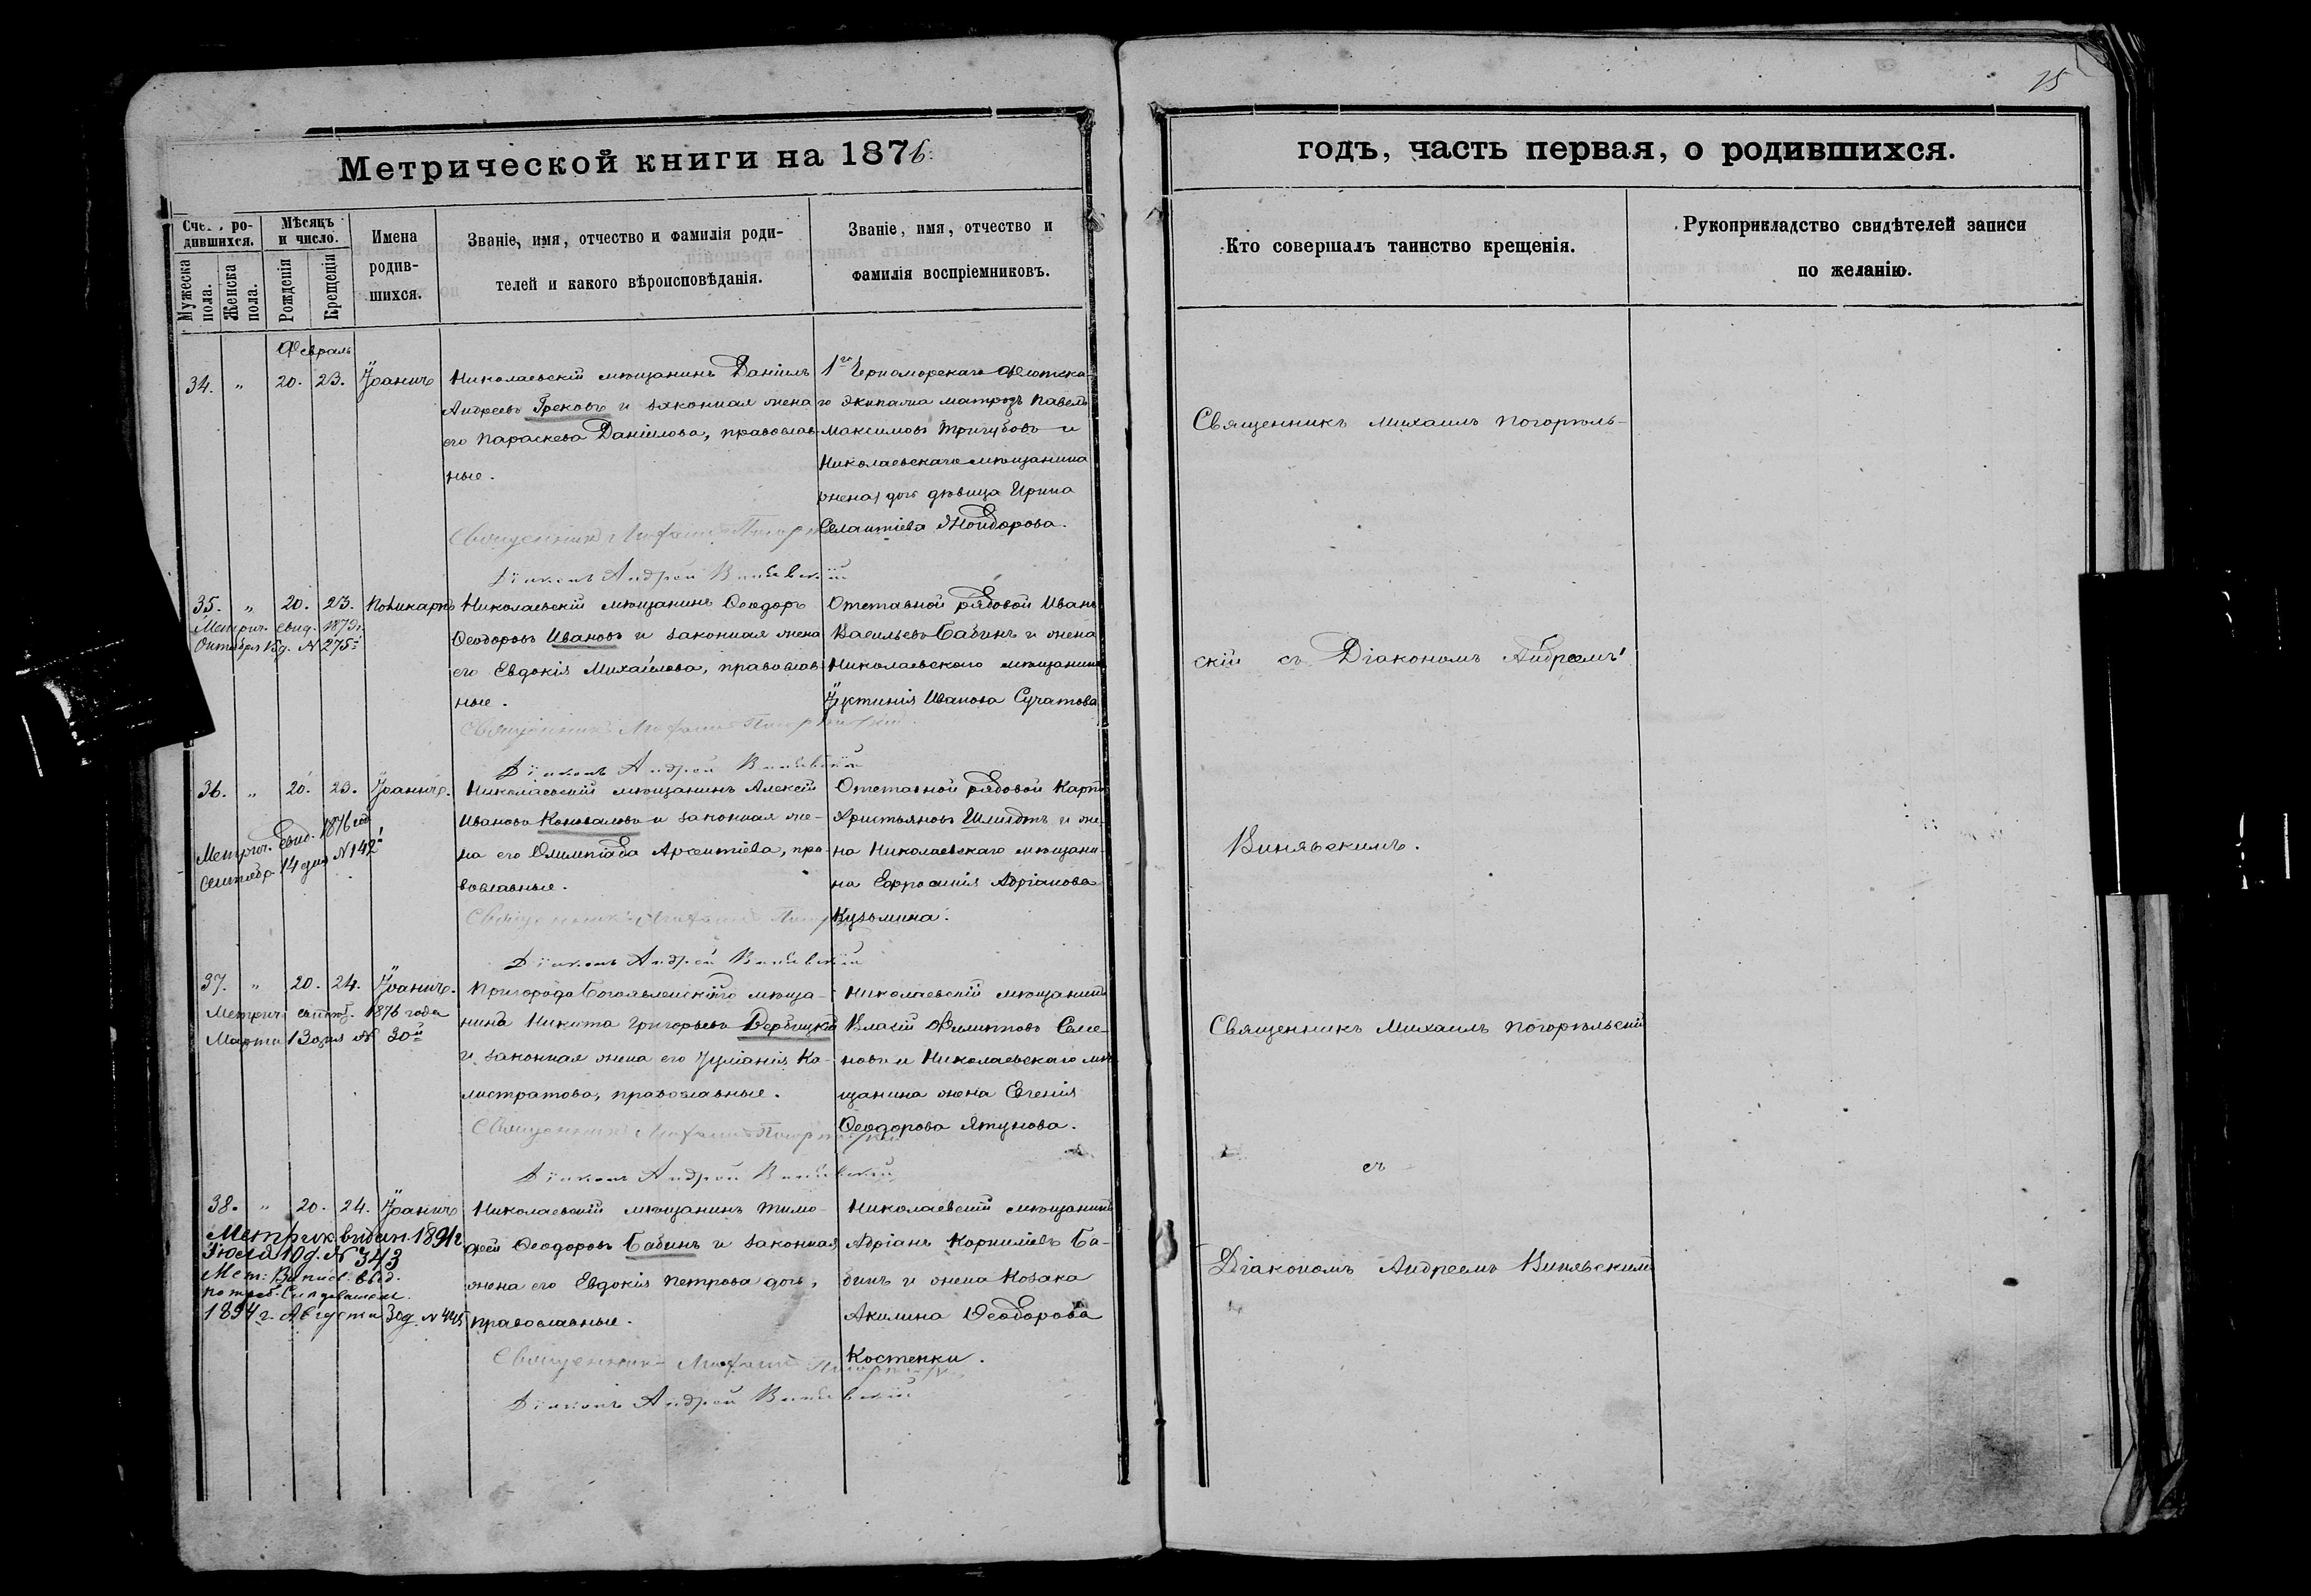 15
Метрической книги на 1876.
годъ, часть первая, о родившихся.
Счетъ ро-
дившихся.
Мужеска пола.
Женска пола.
Мѣсяцъ
и число.
Рожденія
Крещенія
Имена
родив-
шихся.
Званіе, имя, отчество и фамилія роди-
телей и какого вѣроисповѣданія.
Званіе, имя, отчество и
фамилія воспріемниковъ.
Кто совершалъ таинство крещенія.
Рукоприкладство свидѣтелей записи
по желанію.
Февраль
34. " 20. 23. Іоаннъ
Николаевскій мѣщанинъ Даніилъ
Андреевъ Грековъ и законная жена
его Параскева Даніилова, православ-
ные.
Священникъ Михаилъ
Діаконъ Андрей Винявскій
1го Черноморскаго Флотска-
го Экипажа матрозъ Павелъ
Максимовъ Тригубовъ и
Николаевскаго мѣщанина
дѣвица Ирина
Священникъ Михаилъ Погорѣль-
35. " 20. 23. Поликарпъ
Метрич. свид. 1879г.
Октября 15д. № 275й
Николаевскій мѣщанинъ Ѳеодоръ
Ѳеодоровъ Ивановъ и законная жена
его Евдокія Михайлова, православ-
ные.
Священникъ Михаилъ
Діаконъ Андрей Винявскій
Отставной рядовой Иванъ
Васильевъ Бабинъ и жена
Николаевскаго мѣщанина
Іустинія Иванова Сучатова
скій съ Діакономъ Андреемъ
36. " 20. 23. Іоаннъ.
Метрич. свид. 1876 год
Сентябр. 14 дня № 142й
Николаевскій мѣщанинъ Алексій
Ивановъ Коноваловъ и законная же-
на его Олимпіада Арсентіева, пра-
вославные.
Священникъ Михаилъ
Діаконъ Андрей Винявскій
Отставной рядовой Карпъ
Христьяновъ Шмидтъ и же-
на Николаевскаго мѣщани-
на Евфросинія Адріанова
Кузьмина.
Винявскимъ.
37. " 20. 24. Іоаннъ.
Метрич. 1876 года
Марта 13 дня № 30й
Пригорода Богоявленскаго мѣща-
нинъ Никита Григорьевъ Вербицкій
и законная жена его Іуліанія Ка-
листратова, православные.
Священникъ Михаилъ Погорѣльскій
Діаконъ Андрей Винявскій
Николаевскій мѣщанинъ
Власій Филиповъ Семе-
новъ и Николаевскаго мѣ-
щанина жена Евгенія
Ѳеодорова Ятунова.
Священникъ Михаилъ Погорѣльскій
съ
38. " 20. 24. Іоаннъ
Метрик. выдан. 1891г.
Іюля 10 д. № 343
Мет. выд.
1894 г. Августа 30д. № 445
Николаевскій мѣщанинъ Тимо-
фей Ѳеодоровъ Бабинъ и законная
жена его Евдокія Петрова дочь,
православные.
Священникъ Михаилъ
Діаконъ Андрей Винявскій
Николаевскій мѣщанинъ
Адріанъ Корниліевъ Ба-
бинъ и жена Козака
Акилина Ѳеодорова
Костенки.
Діакономъ Андреемъ Винявскимъ